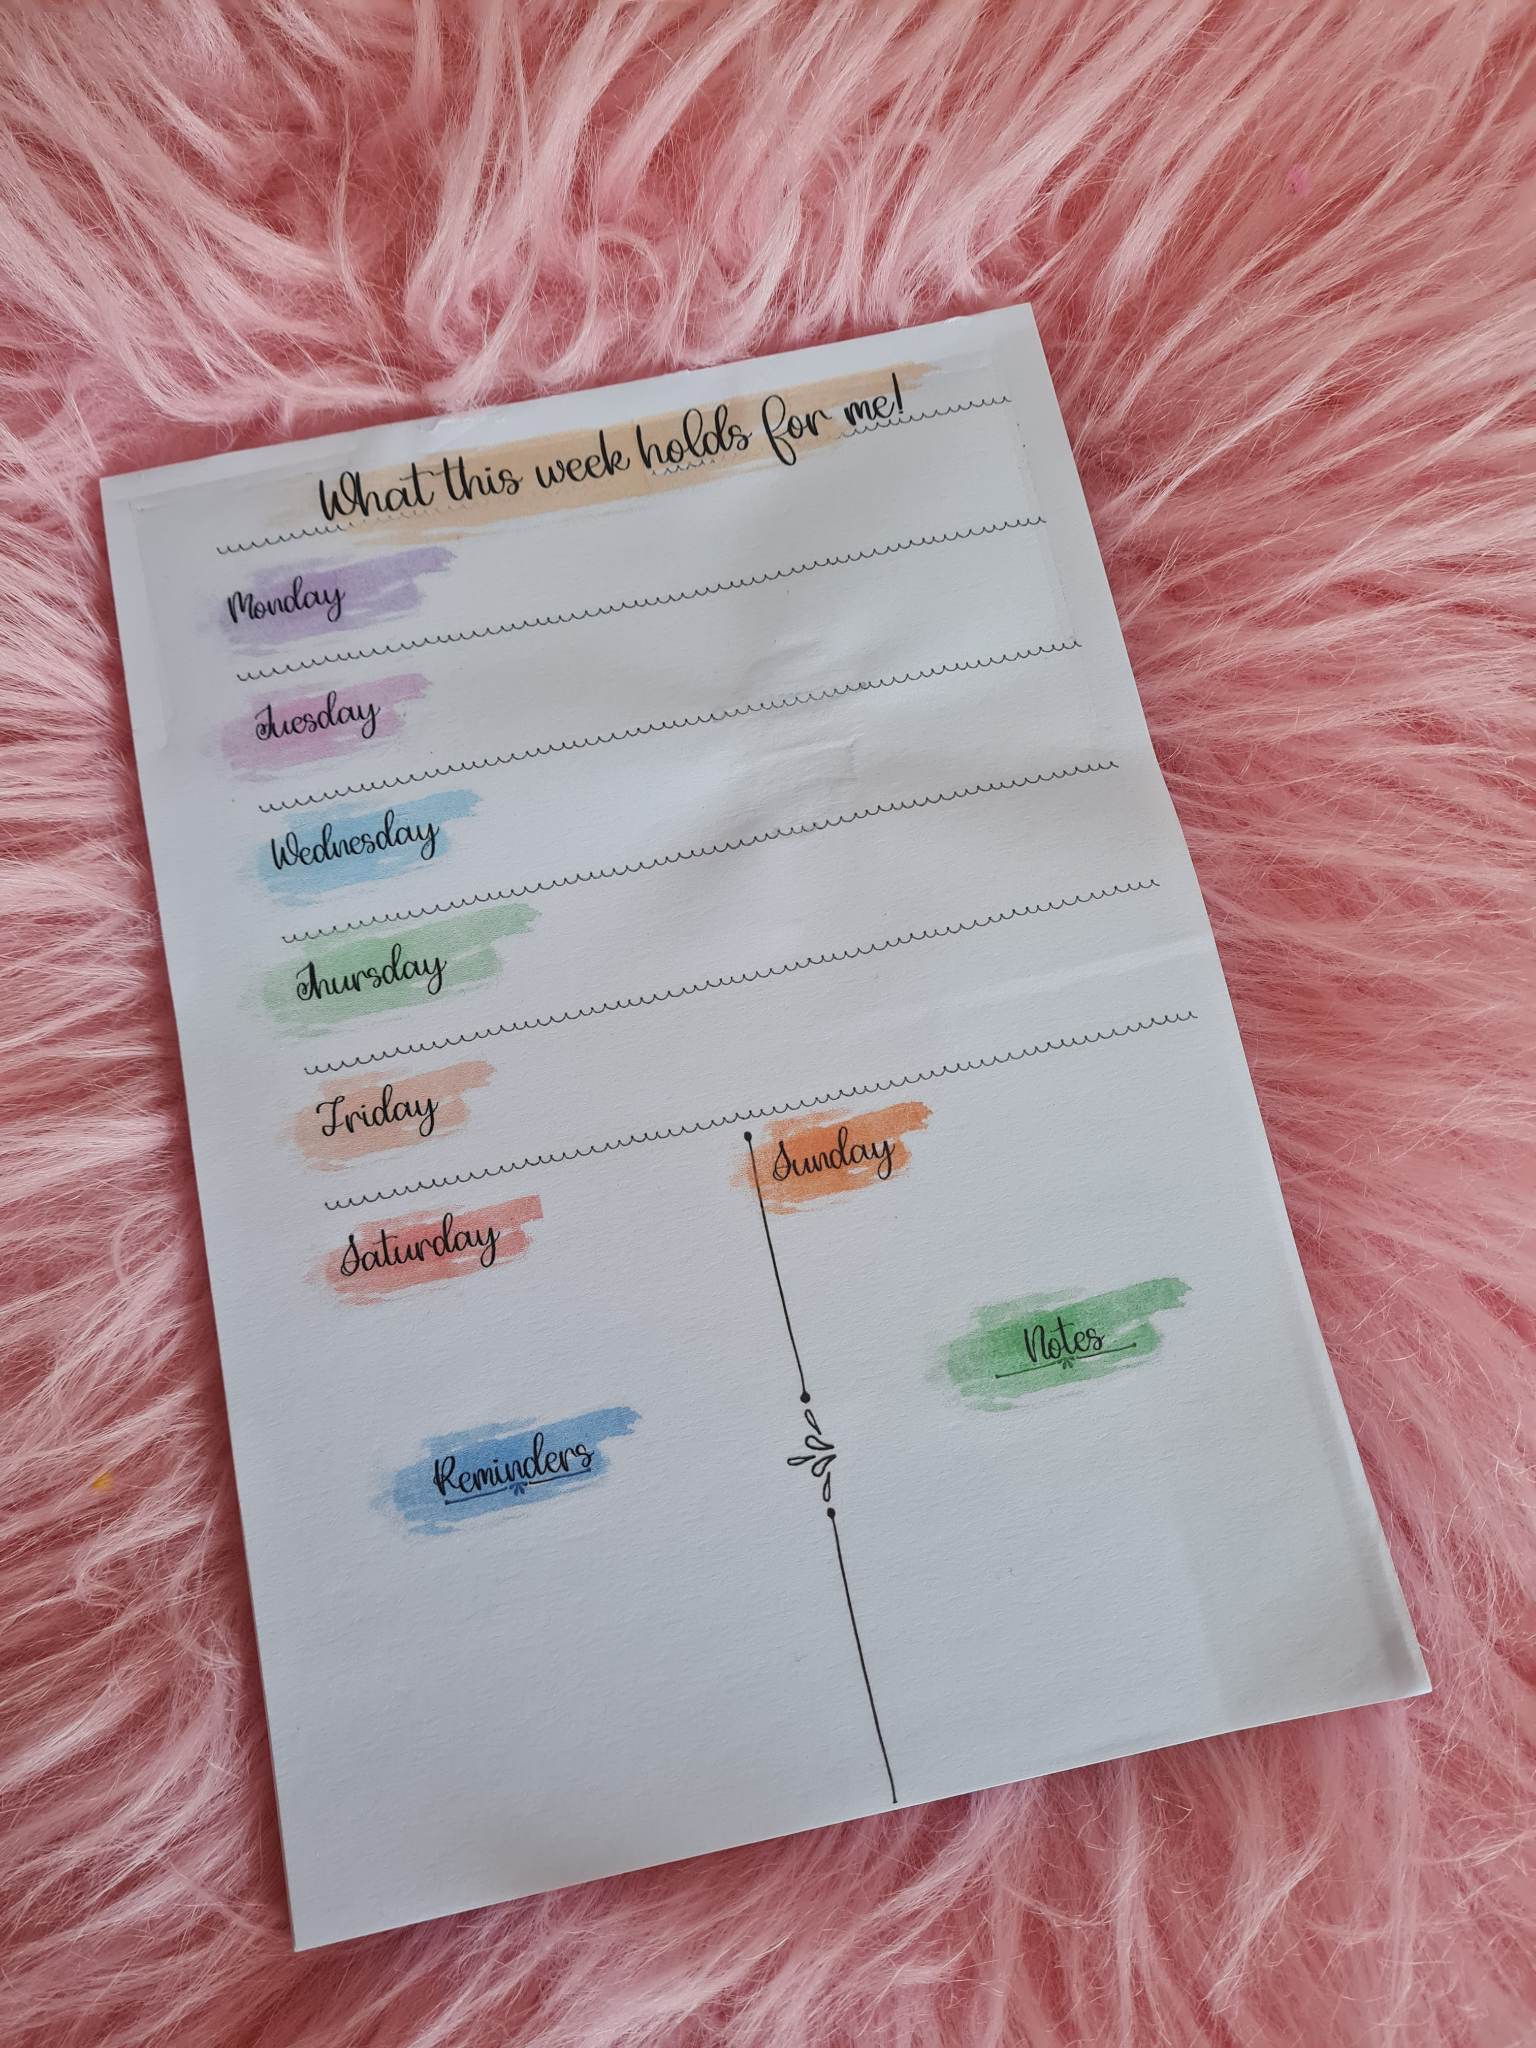 What this week holds for me!
Monday
Tuesday
Wednesday
Thursday
Friday
Saturday
Sunday
Reminders
Notes